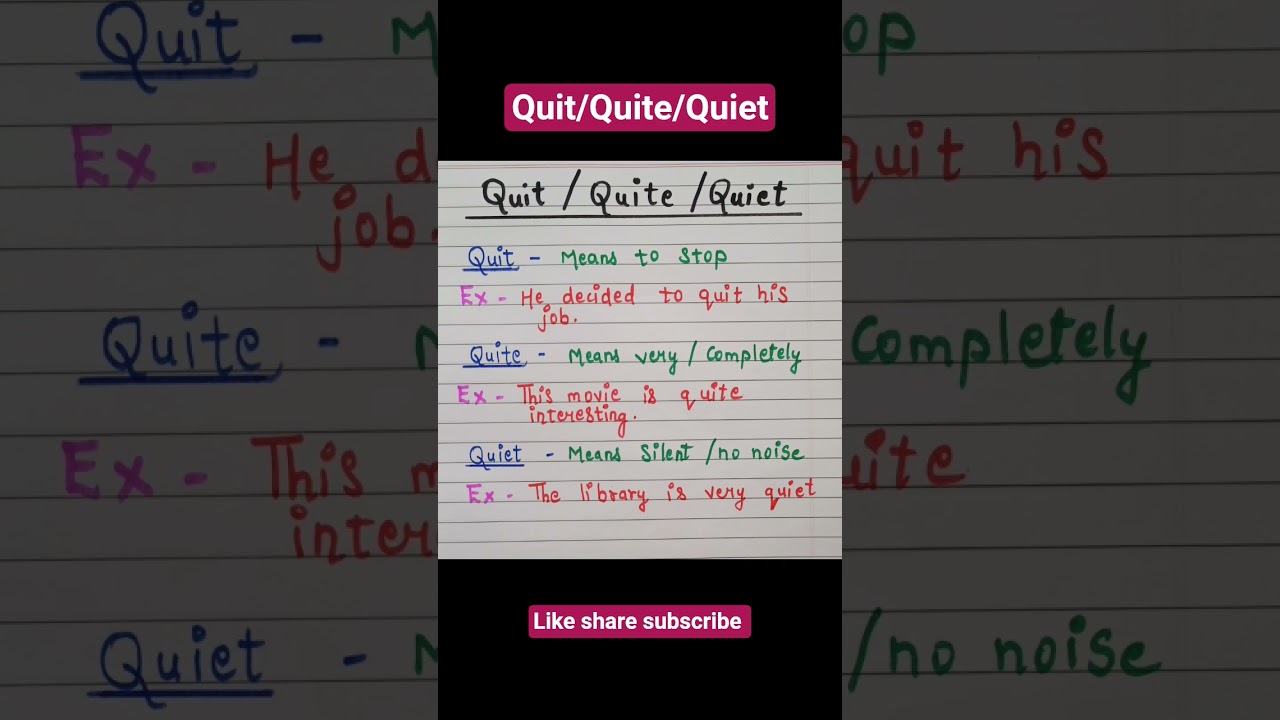 Quit/Quite/Quiet
Quit / Quite / Quiet
Quit - Means to stop
Ex - He decided to quit his
job.
Quite - Means very / Completely
Ex - This movie is quite
interesting.
Quiet - Means Silent /no noise
Ex - The library is very quiet
Like share subscribe